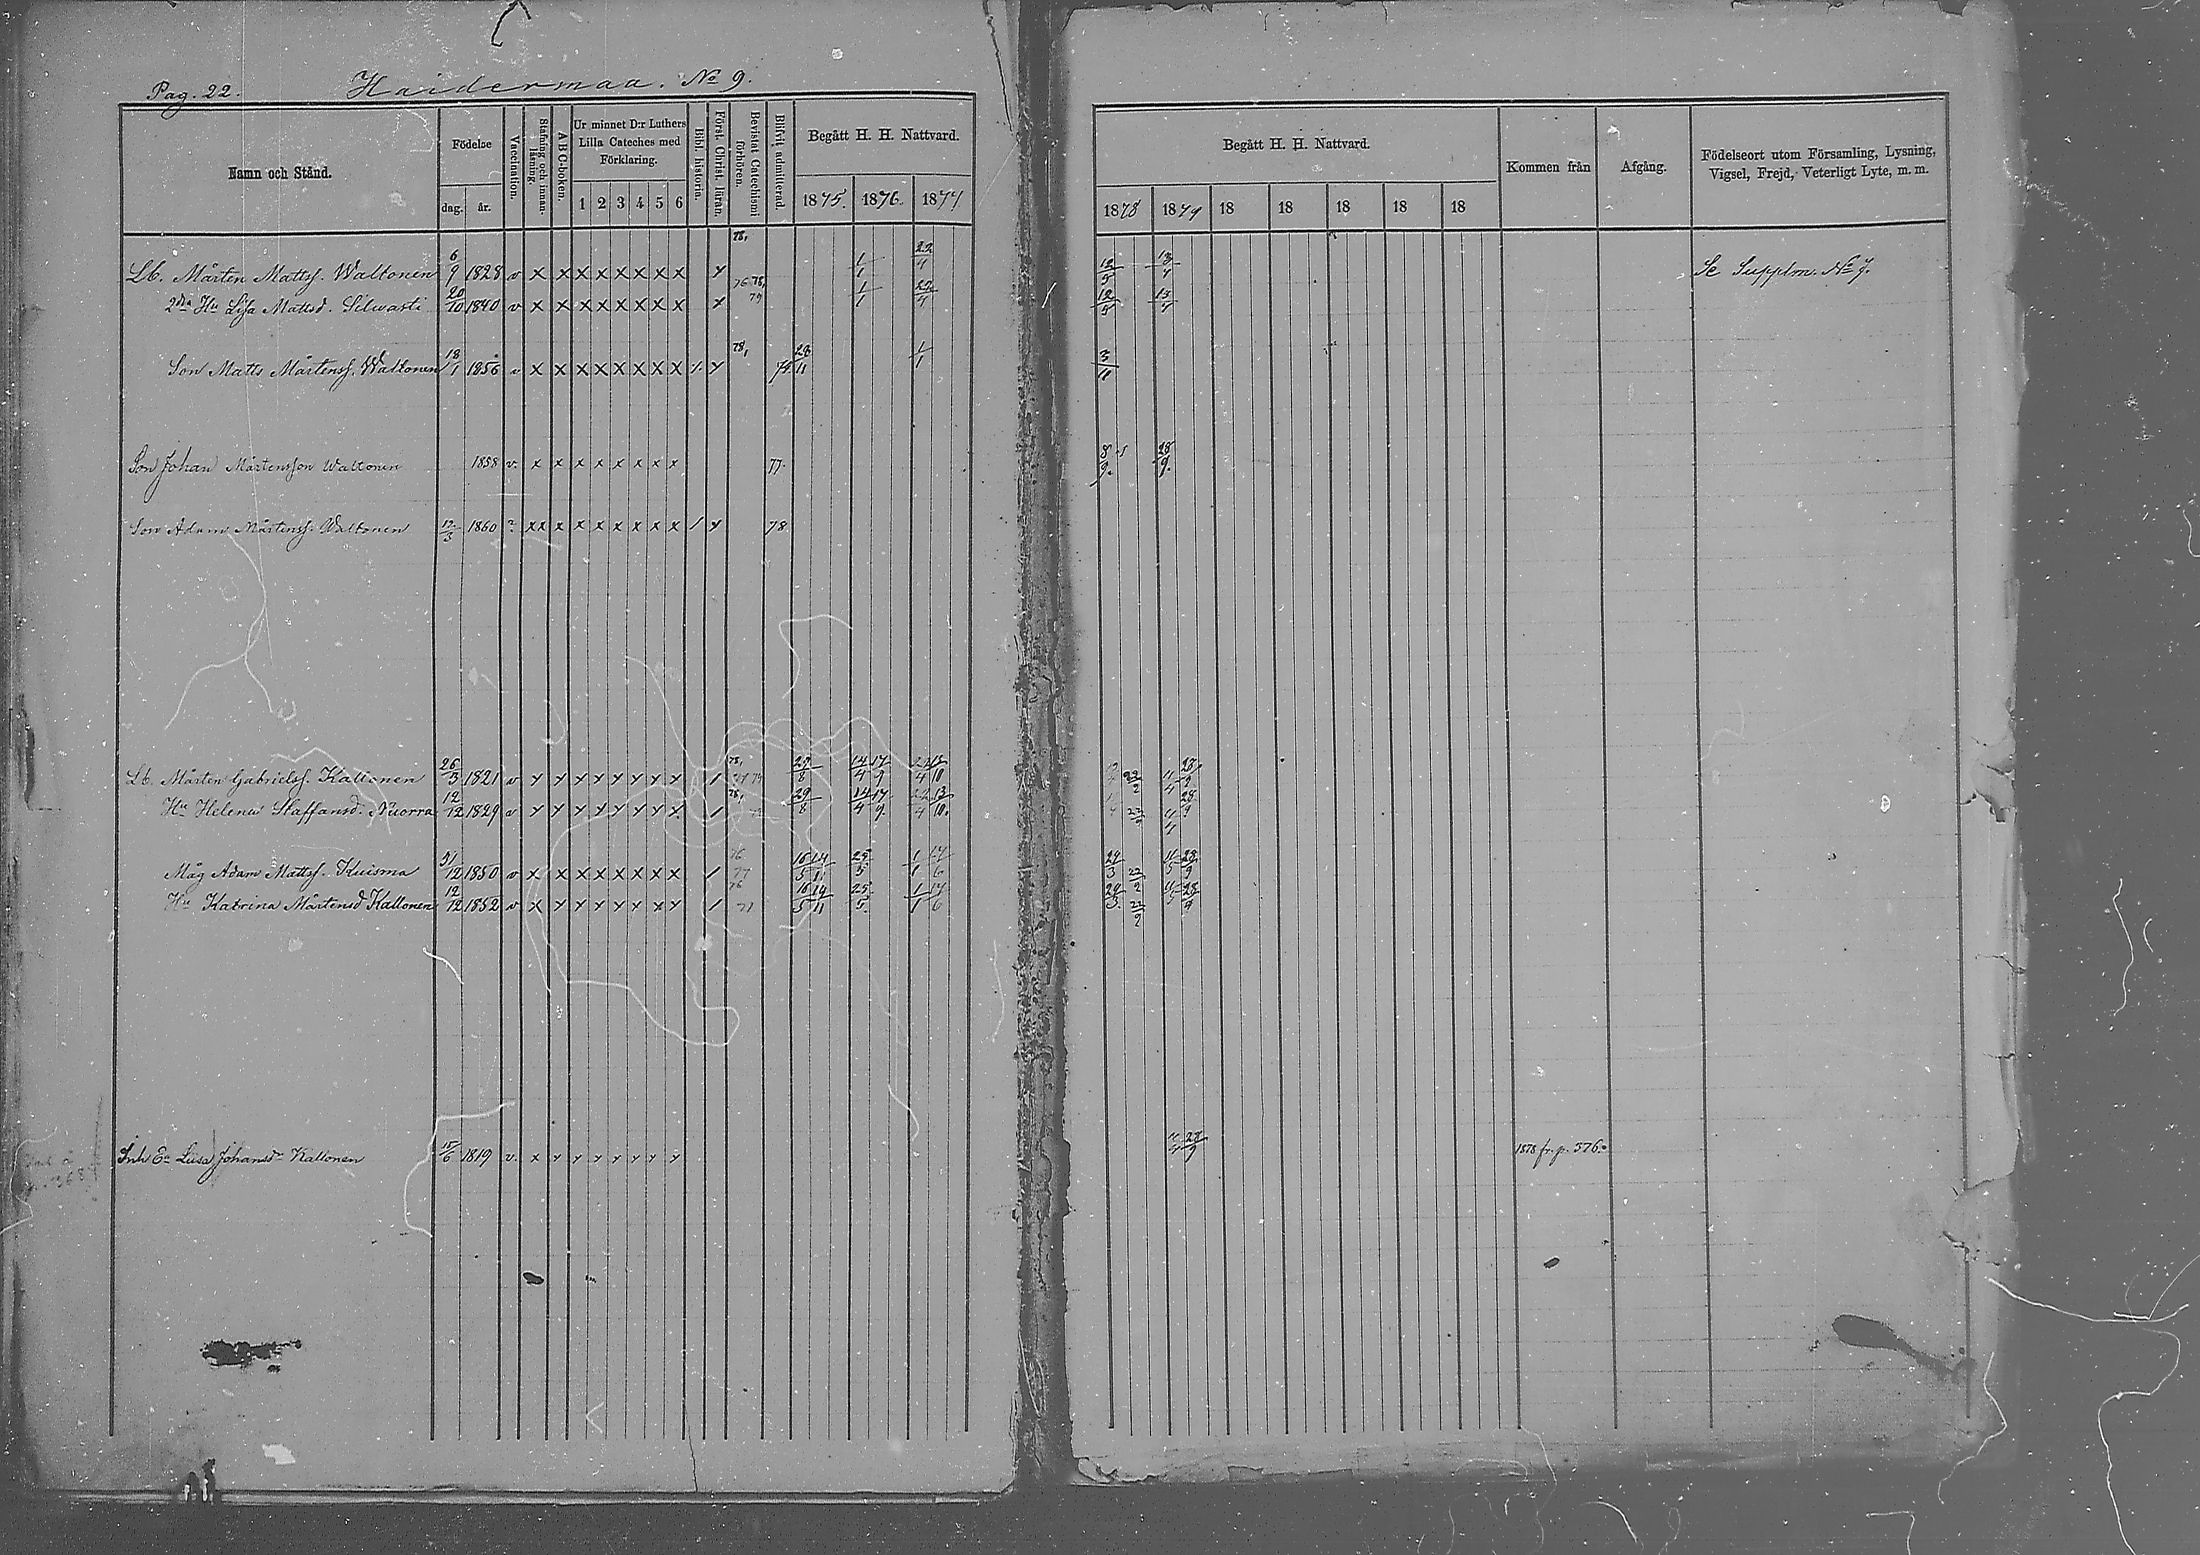 Pag. 22. Haidermaa. No 9.
Namn och Stånd. Födelse dag. år. Vaccination. Stafning och innanläsning. A B C-boken. Ur minnet D:r Luthers Lilla Cateches med Förklaring. 1 2 3 4 5 6 Bibl. historia. Först. Christ. läran. Bevistat Catechismi förhören. Blifvit admitterad. Begått H. H. Nattvard. 1875. 1876. 1877.
Begått H. H. Nattvard. 1878 1879 18 18 18 18 18 Kommen från Afgång. Födelseort utom Församling, Lysning, Vigsel, Frejd, Veterligt Lyte, m. m.
Lb. Mårten Mattss. Waltonen 6/9 1828 v x x x x x x x x x 78, 1/1 22/4 12/5 13/4 Se Supplm. No 7.
2dra Hu Lisa Mattsd. Silwasti 20/10 1840 v x x x x x x x x x 76 78, 79 1/1 22/4 12/5 13/4
Son Matts Mårtenss. Waltonen 18/1 1856 v x x x x x x x x 78, 28/11 1/1 3/11
Son Johan Mårtensson Waltonen 1858 v. x x x x x x x x 77. 8/9. 28/9.
Son Adam Mårtenss. Waltonen 1860 xx x x x x x x x 78
Lb. Mårten Gabrielss. Kallonen 26/3 1821 v 78, 29/8 14/4 17/9 22/4 13/10 23/2 4/4 28/9
Hu Helena Staffansd. Nuorra 12/12 1829 v 78, 29/8 14/4 17/9. 22/4 13/10. 4/4 28/9
Måg Adam Mattss. Kuisma 31/12 1850 v x x x x x x x x 76 77 16/5 14/11 25/5 1/1 17/6 24/3 28/9
Hu Katrina Mårtensd Kallonen 12/12 1852 v 76 77 16/5 14/11 25/5. 1/1 17/6 24/3. 28/9
Inh Ea Lusa Johansd Kallonen 15/6 1819 v. 28/9 1878 fr. p. 376.